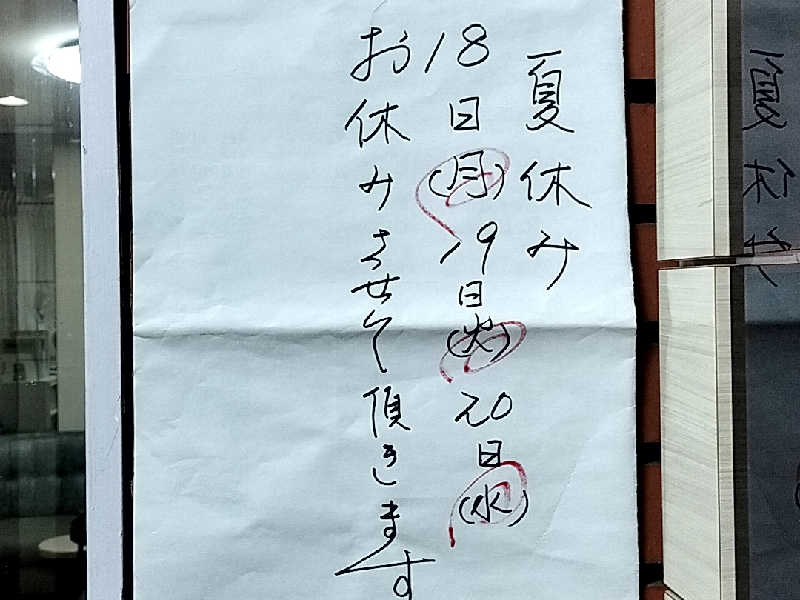 夏休み
18日(月)19日(火)20日(水)
お休みさせて頂きます
夏休み